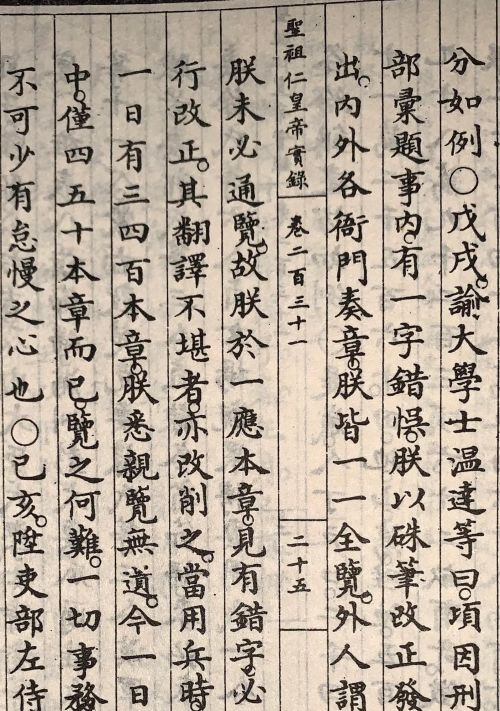 分如例○戊戌。諭大學士溫達等曰。頃因刑
部彙題事內。有一字錯悞。朕以硃筆改正發
出。內外各衙門奏章。朕皆一一全覽。外人謂
聖祖仁皇帝實錄 卷二百三十一 二十五
朕未必通覽。故朕於一應本章。見有錯字。必
行改正。其翻譯不堪者。亦改削之。當用兵時。
一日有三四百本章。朕悉親覽無遺。今一日
中。僅四五十本章而已。覽之何難。一切事務
不可少有怠慢之心也○己亥。陞吏部左侍